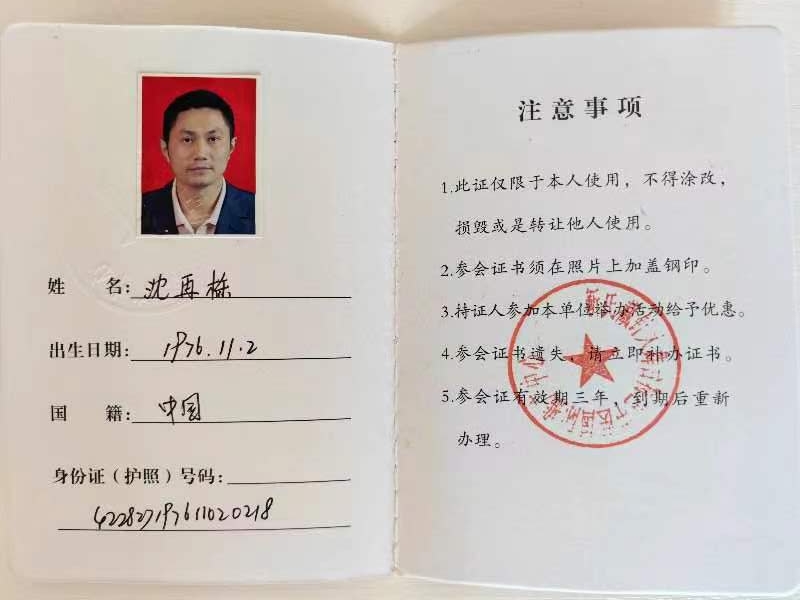 姓 名：沈再栋
出生日期：1976.11.2
国 籍：中国
身份证（护照）号码：
422827197611020218
注意事项
1.此证仅限于本人使用，不得涂改，
损毁或是转让他人使用。
2.参会证书须在照片上加盖钢印。
3.持证人参加本单位举办活动给予优惠。
4.参会证书遗失，请立即补办证书。
5.参会证有效期三年，到期后重新
办理。